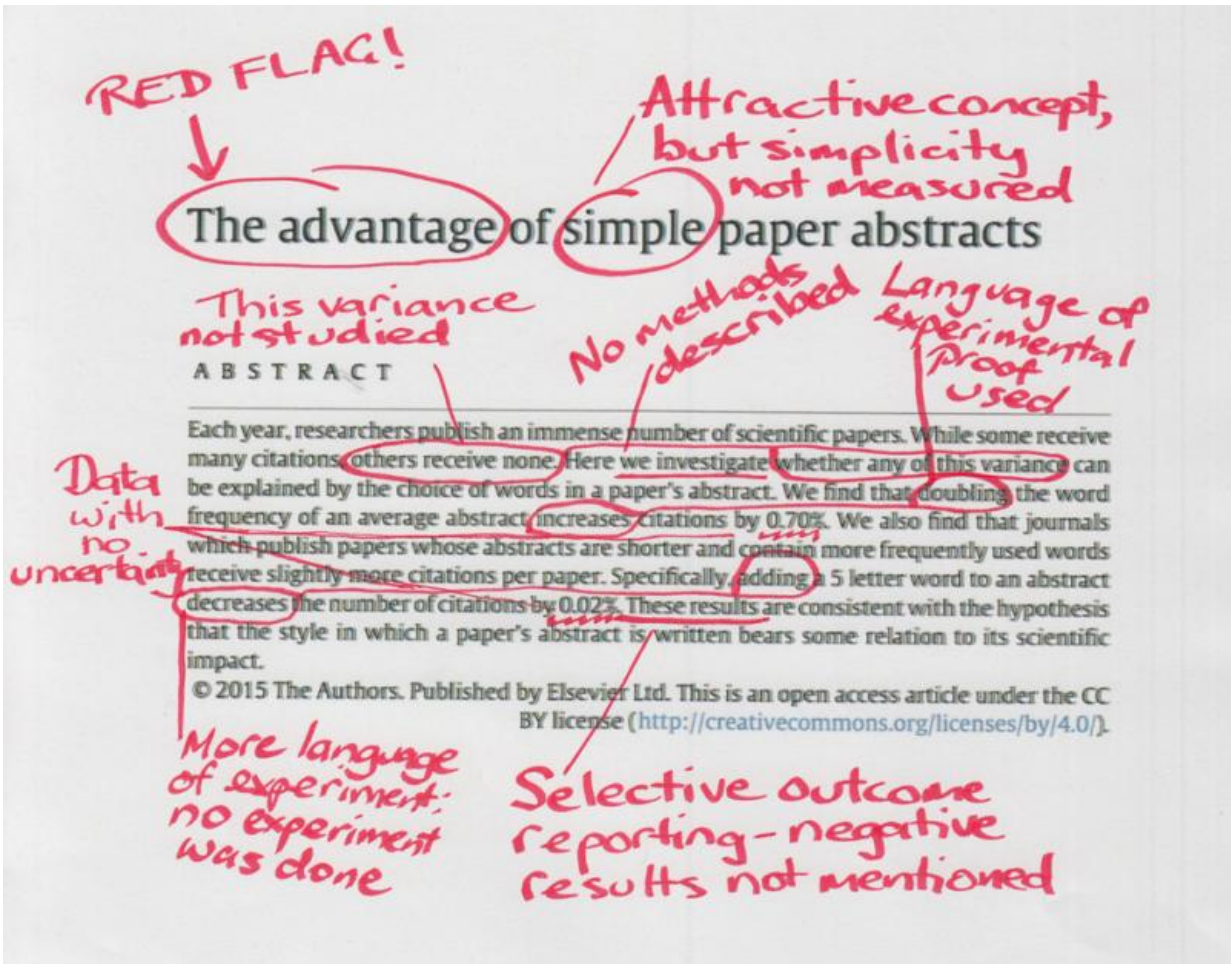 RED FLAG!
Attractive concept,
but simplicity
not measured
The advantage of simple paper abstracts
This variance
not studied
No methods
described
Language of
experimental
proof
used
ABSTRACT
Each year, researchers publish an immense number of scientific papers. While some receive
many citations, others receive none. Here we investigate whether any of this variance can
be explained by the choice of words in a paper's abstract. We find that doubling the word
frequency of an average abstract increases citations by 0.70%. We also find that journals
which publish papers whose abstracts are shorter and contain more frequently used words
receive slightly more citations per paper. Specifically, adding a 5 letter word to an abstract
decreases the number of citations by 0.02%. These results are consistent with the hypothesis
that the style in which a paper's abstract is written bears some relation to its scientific
impact.
© 2015 The Authors. Published by Elsevier Ltd. This is an open access article under the CC
BY license (http://creativecommons.org/licenses/by/4.0/).
Data
with
no
uncertainty
More language
of experiment:
no experiment
was done
Selective outcome
reporting - negative
results not mentioned